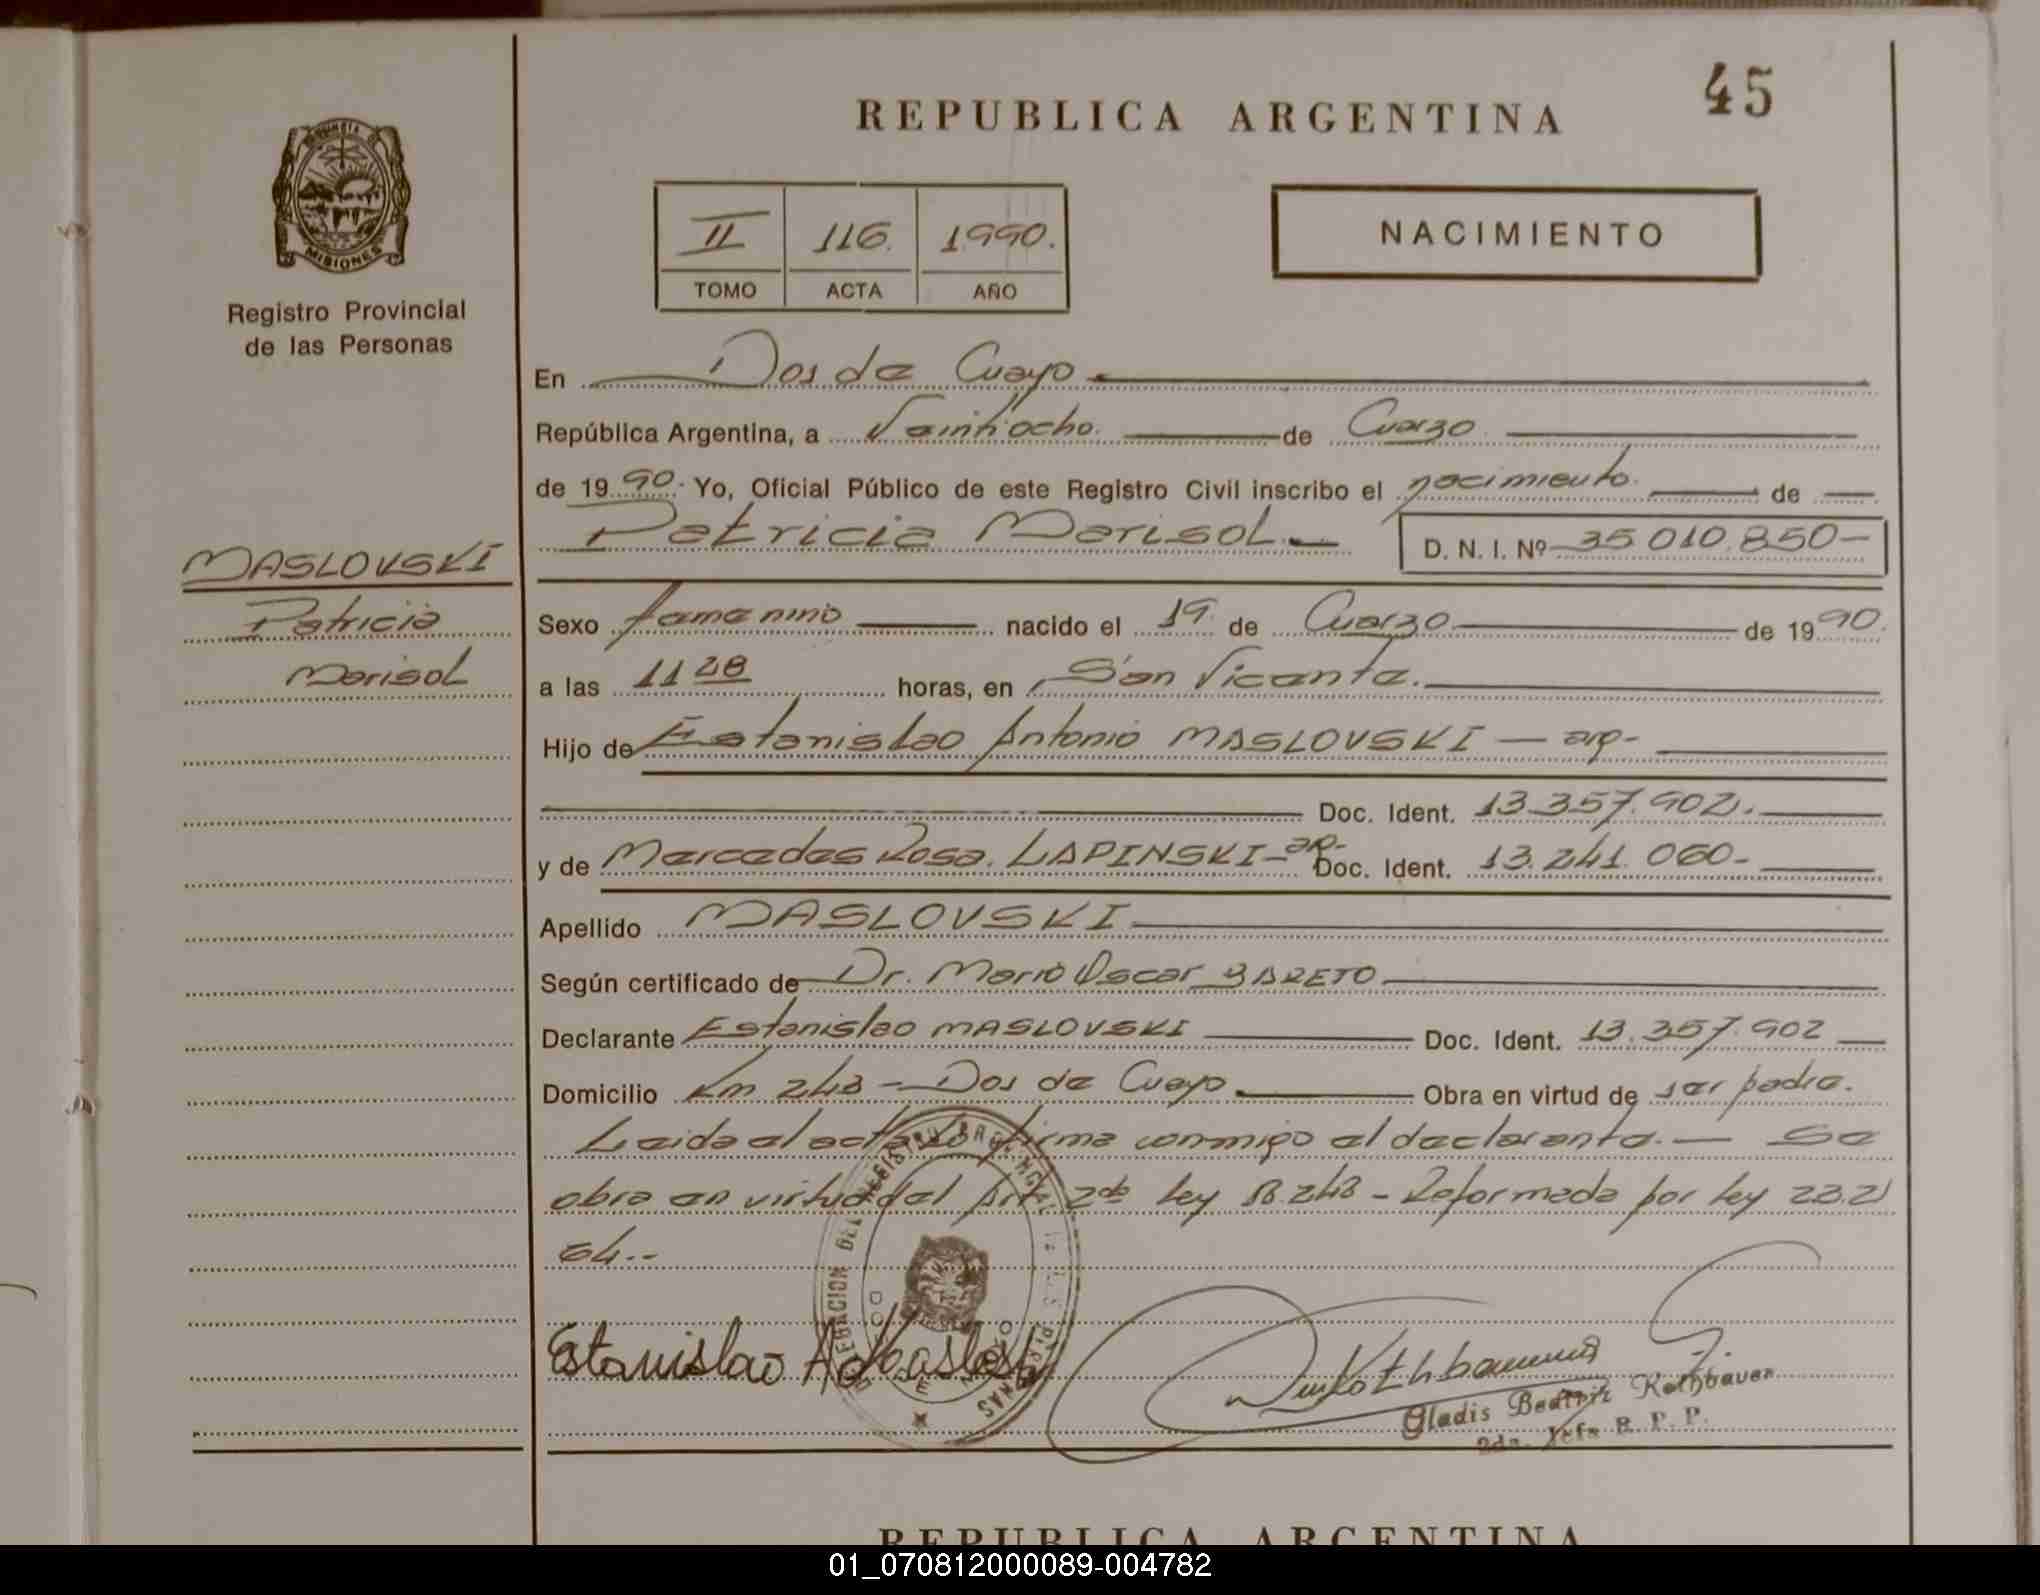 45
REPUBLICA ARGENTINA
PROVINCIA DE
MISIONES
Registro Provincial
de las Personas
II 116. 1990.
TOMO ACTA AÑO
NACIMIENTO
En Dos de Mayo
República Argentina, a Veintiocho. de Marzo
de 1990. Yo, Oficial Público de este Registro Civil inscribo el nacimiento. de
Patricia Marisol D. N. I. Nº 35.010.850-
MASLOVSKI
Patricia
Marisol
Sexo femenino nacido el 19 de Marzo de 1990.
a las 11 28 horas, en San Vicente.
Hijo de Estanislao Antonio MASLOVSKI — arg-
Doc. Ident. 13.357.902.
y de Mercedes Rosa. LAPINSKI- ar- Doc. Ident. 13.241.060-
Apellido MASLOVSKI
Según certificado de Dr. Mario Oscar BARETO
Declarante Estanislao MASLOVSKI Doc. Ident. 13.357.902
Domicilio Km 243 - Dos de Mayo Obra en virtud de ser padre.
Leida el acta, la firma conmigo el declarante. — Se
obra en virtud del Art 2do ley 18.248 - Reformada por ley 23.2
64..
Estanislao A
DELEGACION DEL REGISTRO PROVINCIAL DE LAS PERSONAS
Gladis Beatriz Rothbauer
2da. Jefe R. P. P.
REPUBLICA ARGENTINA
01_070812000089-004782